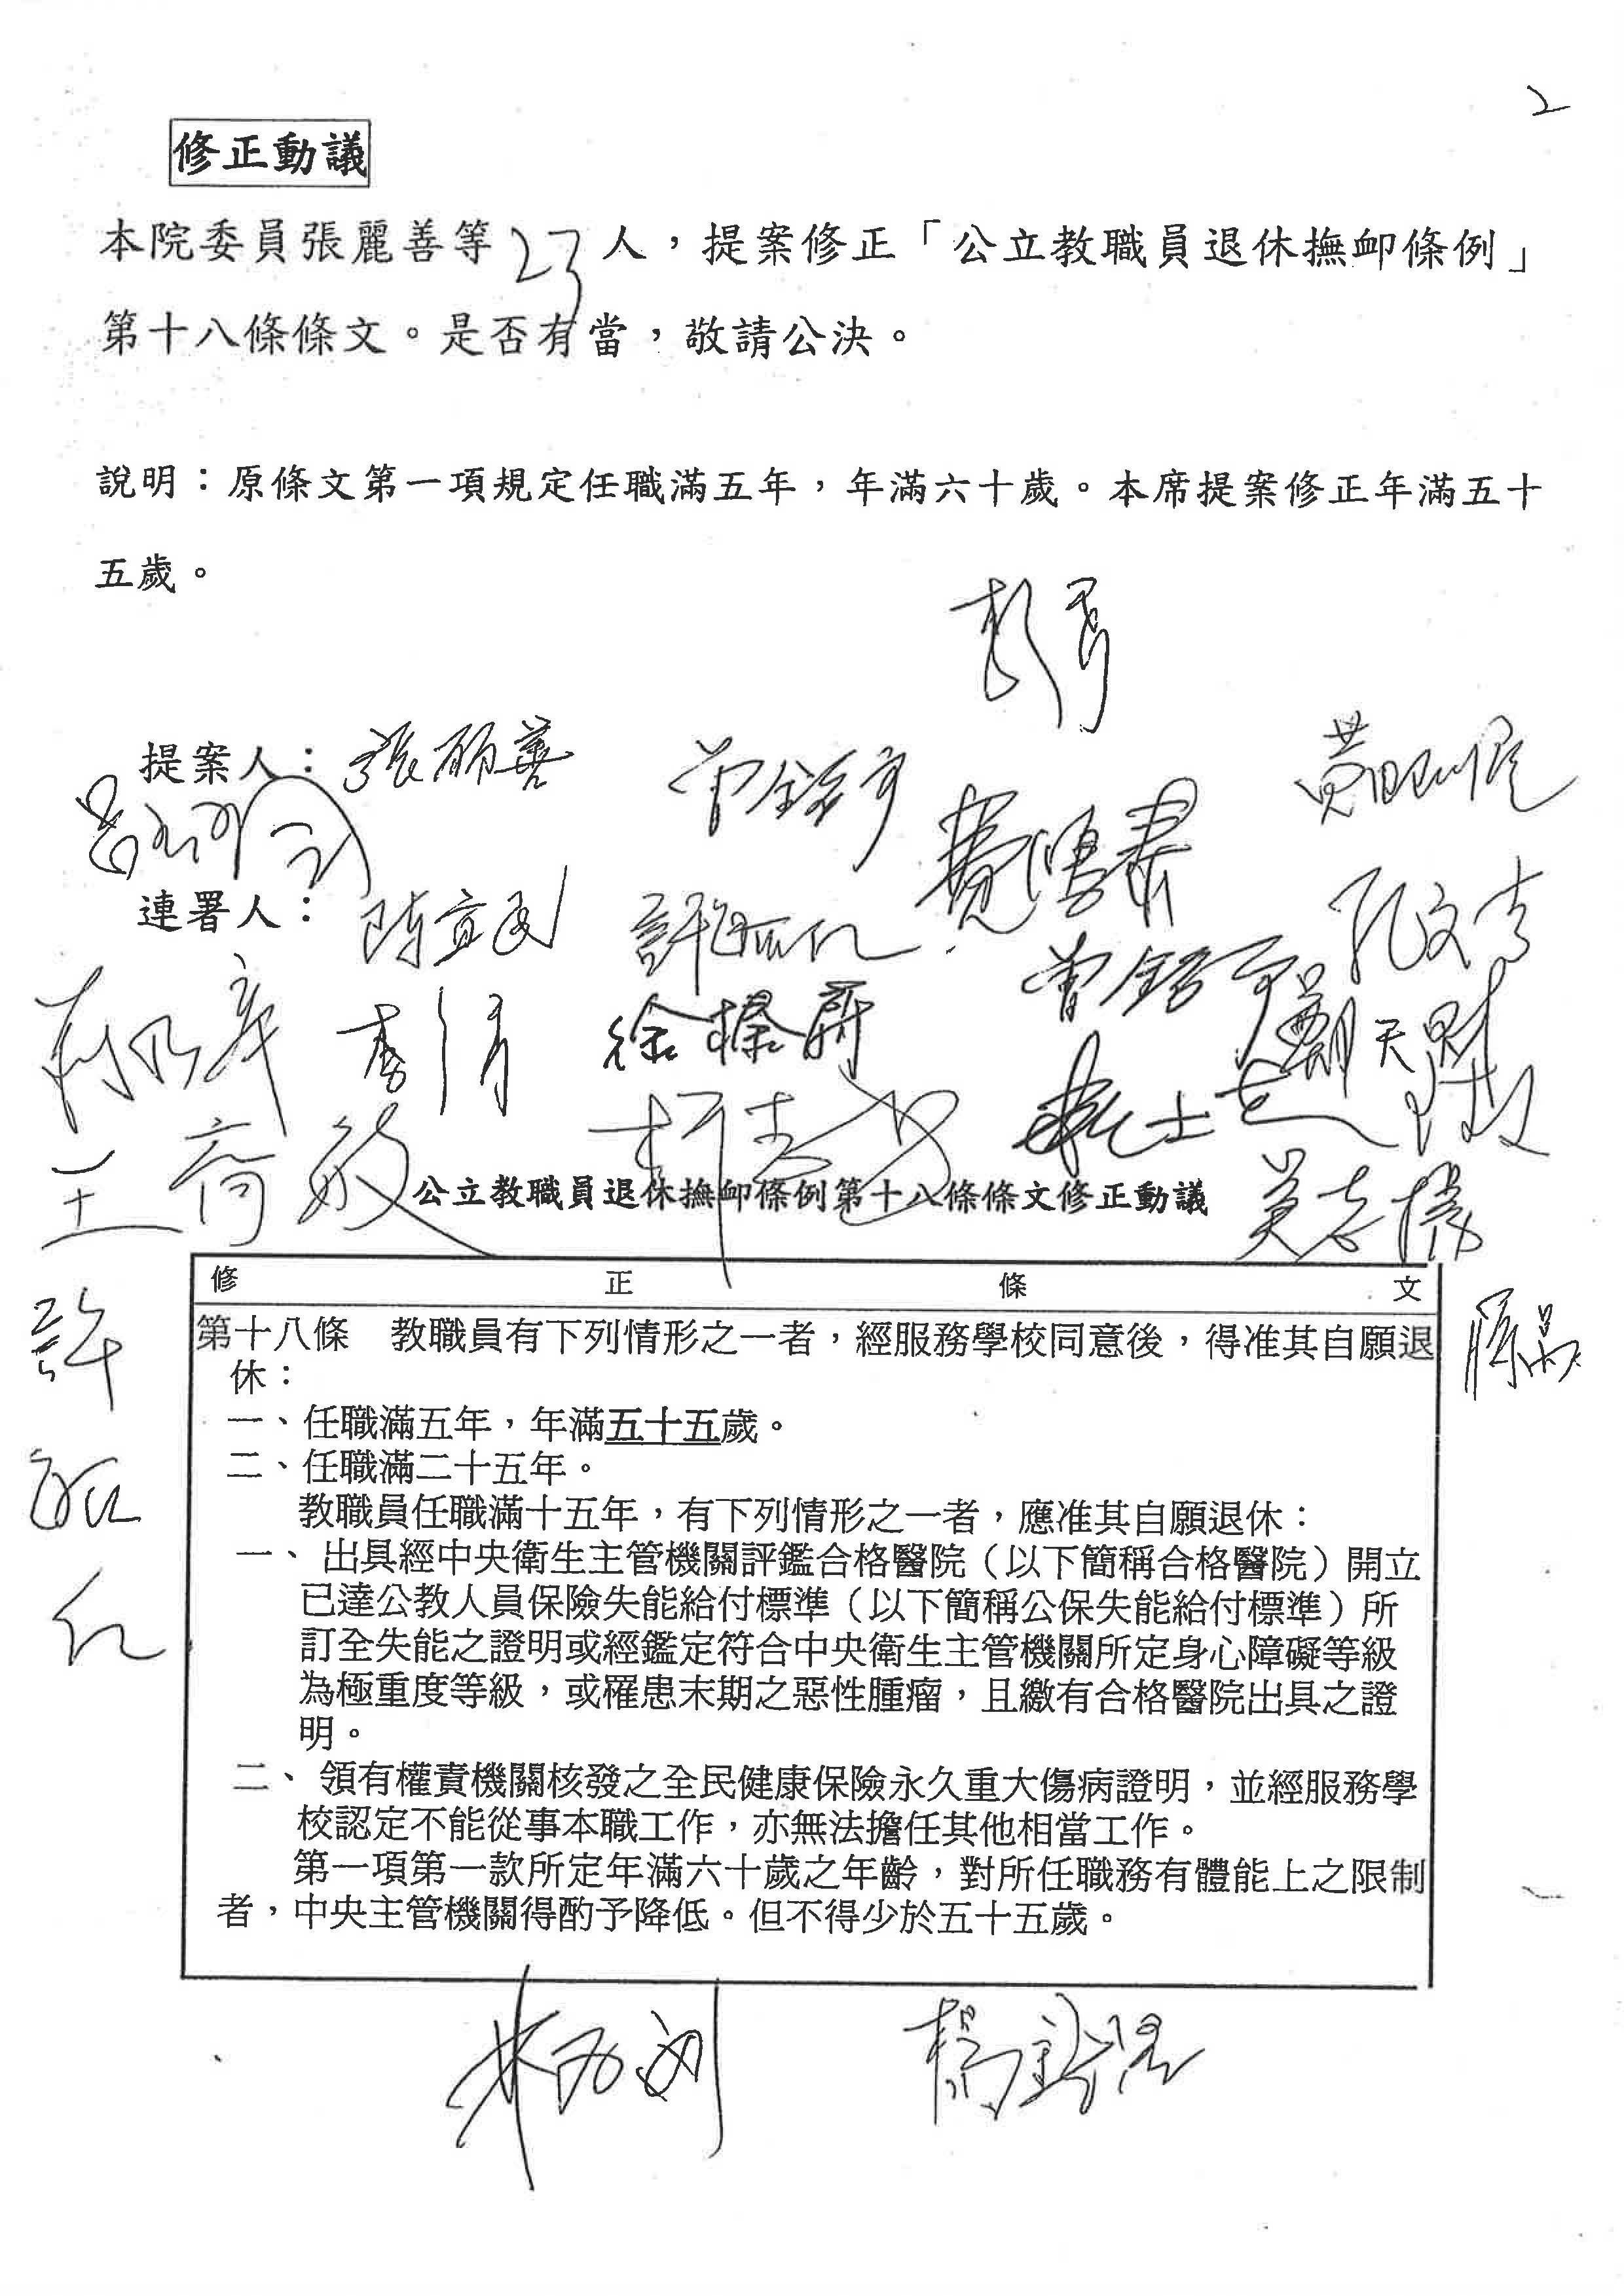 2
修正動議
本院委員張麗善等23人，提案修正「公立教職員退休撫卹條例」
第十八條條文。是否有當，敬請公決。
說明：原條文第一項規定任職滿五年，年滿六十歲。本席提案修正年滿五十
五歲。
提案人：張麗善
曾銘宗
黃昭順
費鴻泰
連署人：陳宜民
許毓仁
孔文吉
曾銘宗
徐榛蔚
鄭天財
柯志恩
公立教職員退休撫卹條例第十八條條文修正動議
吳志揚
修正條文
第十八條　教職員有下列情形之一者，經服務學校同意後，得准其自願退
休：
一、任職滿五年，年滿五十五歲。
二、任職滿二十五年。
教職員任職滿十五年，有下列情形之一者，應准其自願退休：
一、出具經中央衛生主管機關評鑑合格醫院（以下簡稱合格醫院）開立
已達公教人員保險失能給付標準（以下簡稱公保失能給付標準）所
訂全失能之證明或經鑑定符合中央衛生主管機關所定身心障礙等級
為極重度等級，或罹患末期之惡性腫瘤，且繳有合格醫院出具之證
明。
二、領有權責機關核發之全民健康保險永久重大傷病證明，並經服務學
校認定不能從事本職工作，亦無法擔任其他相當工作。
第一項第一款所定年滿六十歲之年齡，對所任職務有體能上之限制
者，中央主管機關得酌予降低。但不得少於五十五歲。
許毓仁